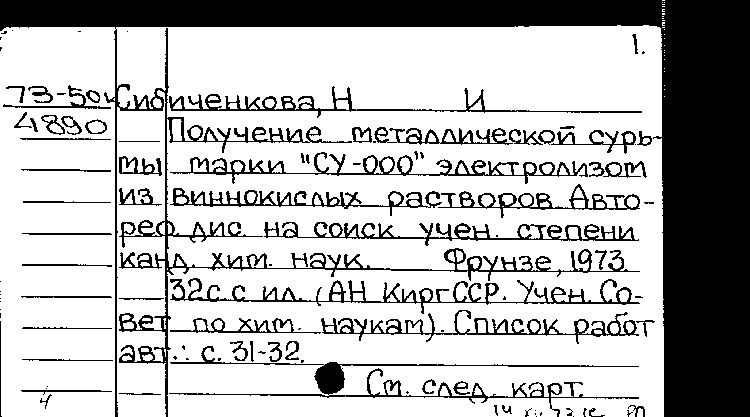 1.
73-50 Сибиченкова, Н И
4890 Получение металлической сурь-
мы марки "СУ-000" электролизом
из виннокислых растворов. Авто-
реф. дис. на соиск. учен. степени
канд. хим. наук. Фрунзе, 1973.
32с. с ил. (АН КиргССР. Учен. Со-
вет по хим. наукам). Список работ
авт.: с. 31-32.
См. след. карт.
4